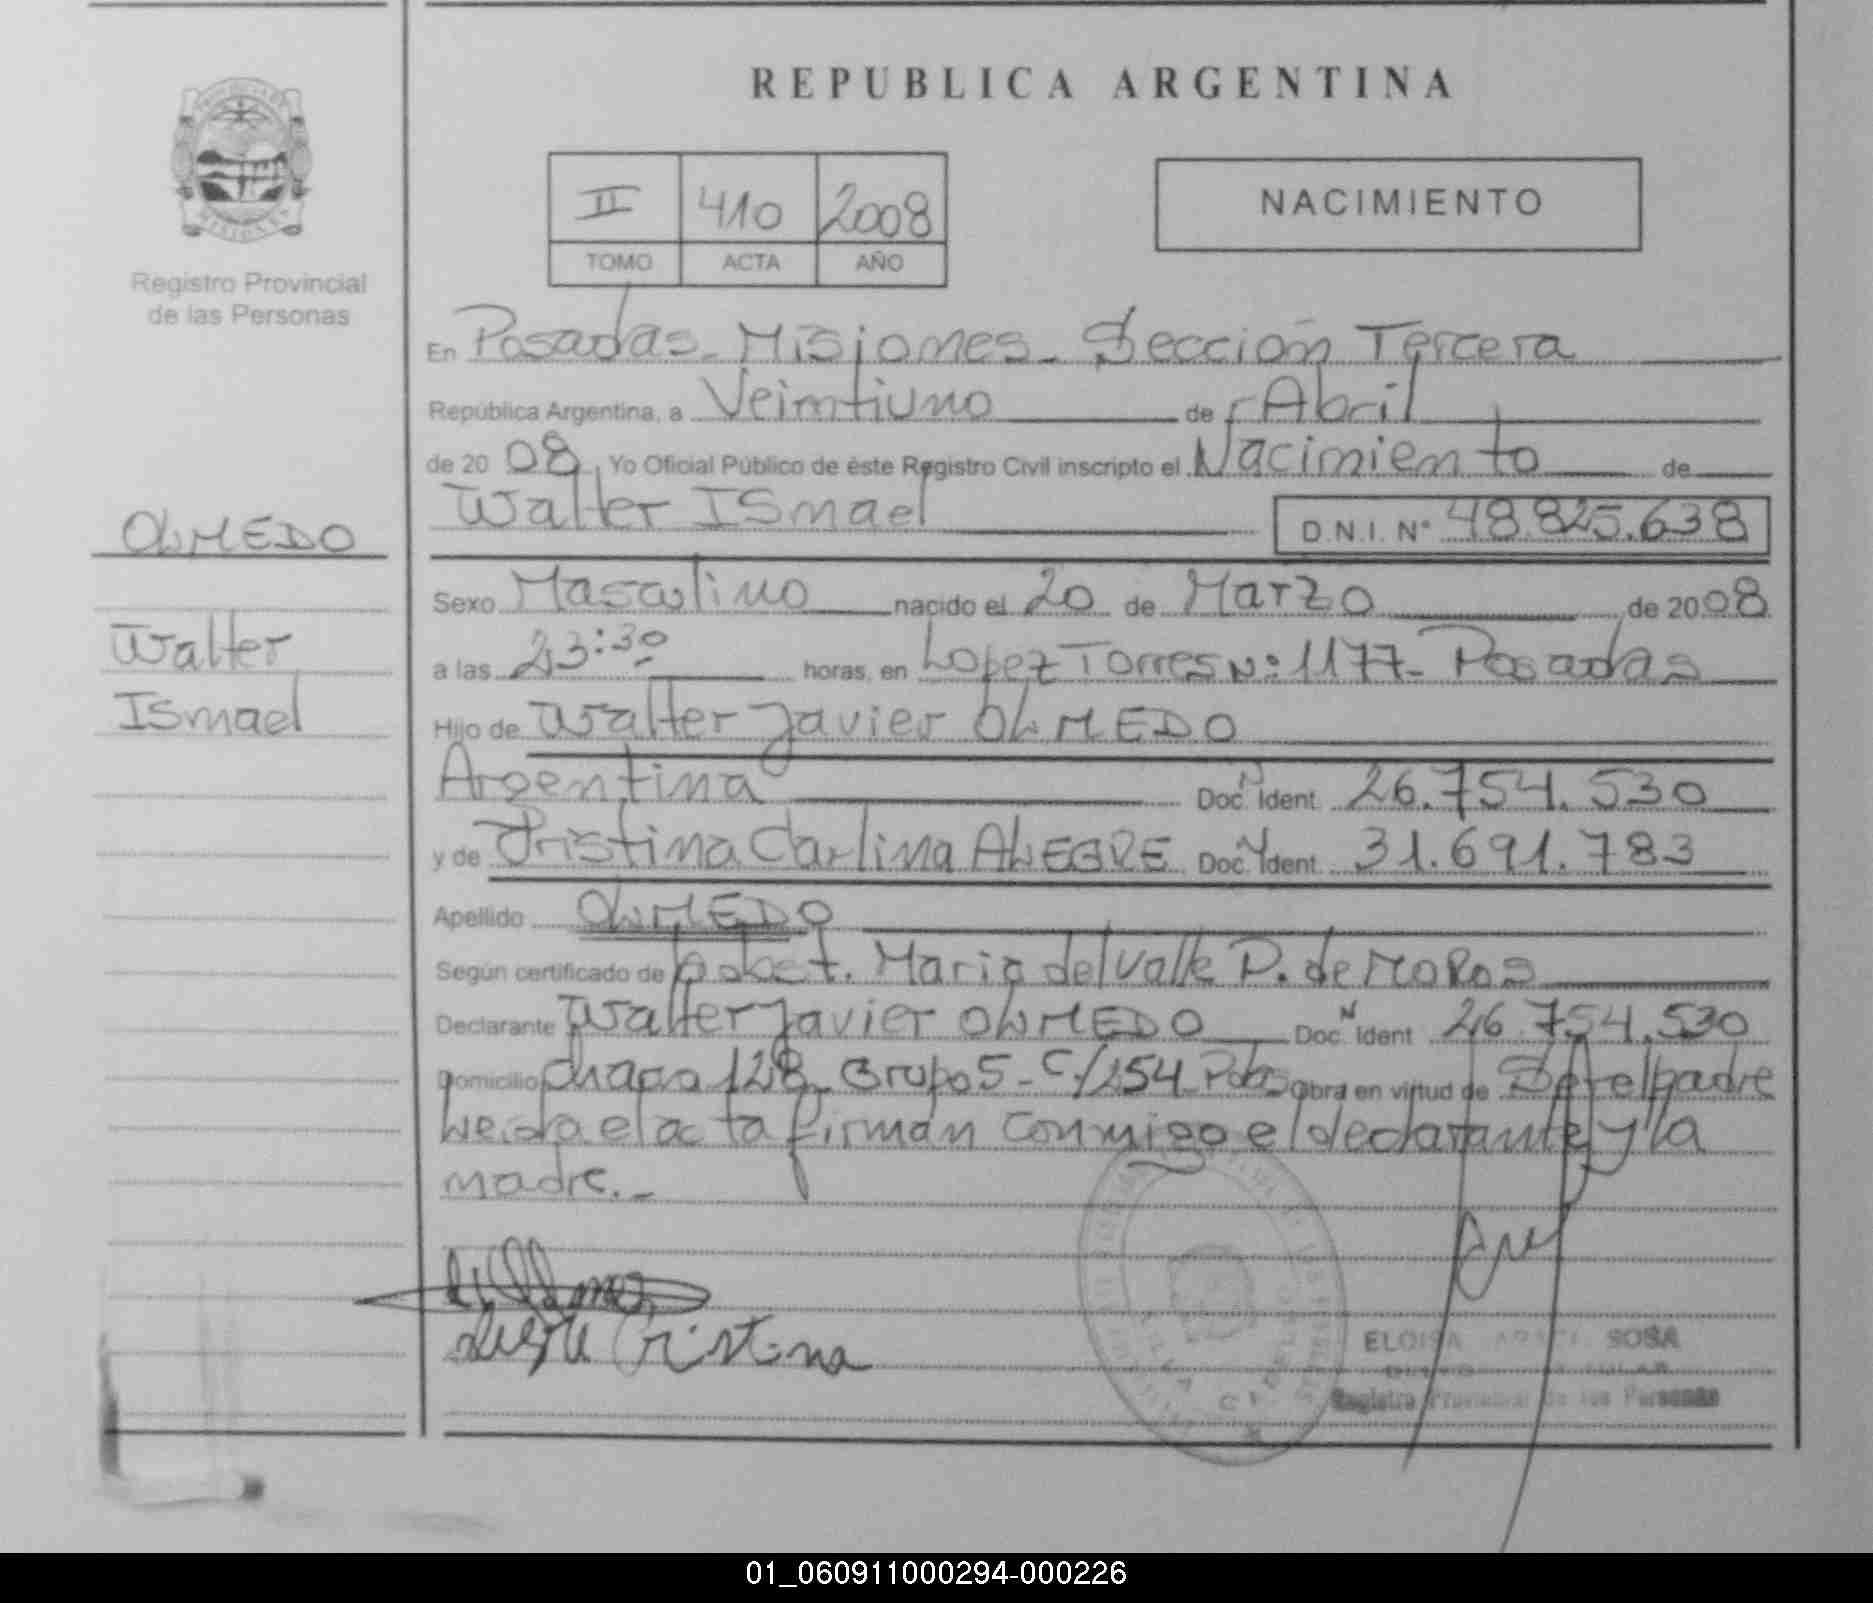 REPUBLICA ARGENTINA
II 410 2008
TOMO ACTA AÑO
NACIMIENTO
Registro Provincial
de las Personas
En Posadas - Misiones - Sección Tercera
República Argentina, a Veintiuno de Abril
de 20 08, Yo Oficial Público de éste Registro Civil inscripto el Nacimiento de
Walter ISmael D.N.I. N° 48.825.638
OLMEDO
Walter
ISmael
Sexo Masculino nacido el 20 de Marzo de 2008
a las 23:30 horas, en Lopez Torres N: 1177 - Posadas
Hijo de Walter Javier OLMEDO
Argentina Doc. N Ident. 26.754.530
y de Cristina Carlina ALEGRE Doc. Ident. 31.691.783
Apellido OLMEDO
Según certificado de obst. Maria del Valle D. de MORos
Declarante Walter Javier OLMEDO Doc. N Ident 26.754.530
Domicilio chacra 128 - Grupo 5 - C/254 - Pdas Obra en virtud de Ser el padre
Leida el acta firman conmigo el declarante y la
madre. -
Cristina
ELOISA SOSA
Registro Provincial de las Personas
01_060911000294-000226